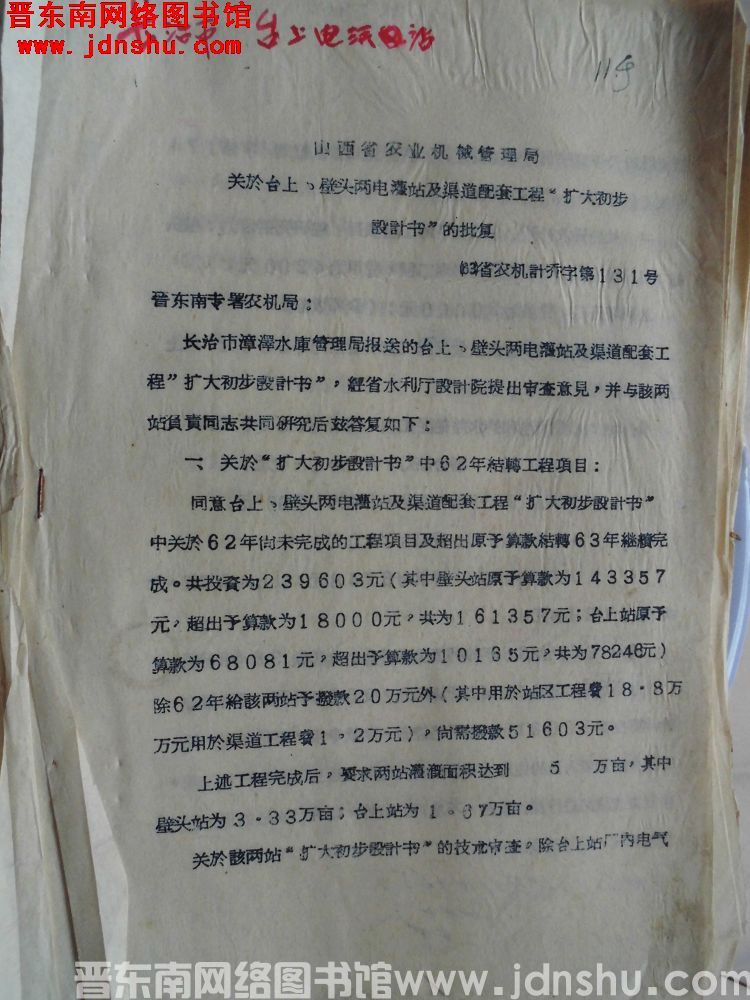 晋东南网络图书馆
www.jdnshu.com
长治市 台上电灌站
119
山西省农业机械管理局
关於台上、壁头两电灌站及渠道配套工程“扩大初步
設計书”的批复
63省农机計乔字第131号
晋东南专署农机局：
长治市漳澤水庫管理局报送的台上、壁头两电灌站及渠道配套工
程”扩大初步設計书”，經省水利厅設計院提出审查意見，并与該两
站負責同志共同研究后兹答复如下：
一、关於“扩大初步設計书”中62年結轉工程項目：
同意台上、壁头两电灌站及渠道配套工程“扩大初步設計书”
中关於62年尚未完成的工程項目及超出原予算款結轉63年継續完
成。共投資为239603元（其中壁头站原予算款为143357
元，超出予算款为18000元，共为161357元；台上站原予
算款为68081元，超出予算款为10165元，共为78246元）
除62年給該两站予撥款20万元外（其中用於站区工程費18.8万
万元用於渠道工程費1.2万元），尚需撥款51603元。
上述工程完成后，要求两站灌溉面积达到 5 万亩，其中
壁头站为3.33万亩；台上站为1.67万亩。
关於該两站“扩大初步設計书”的技术审查。除台上站厂内电气
晋东南网络图书馆www.jdnshu.com